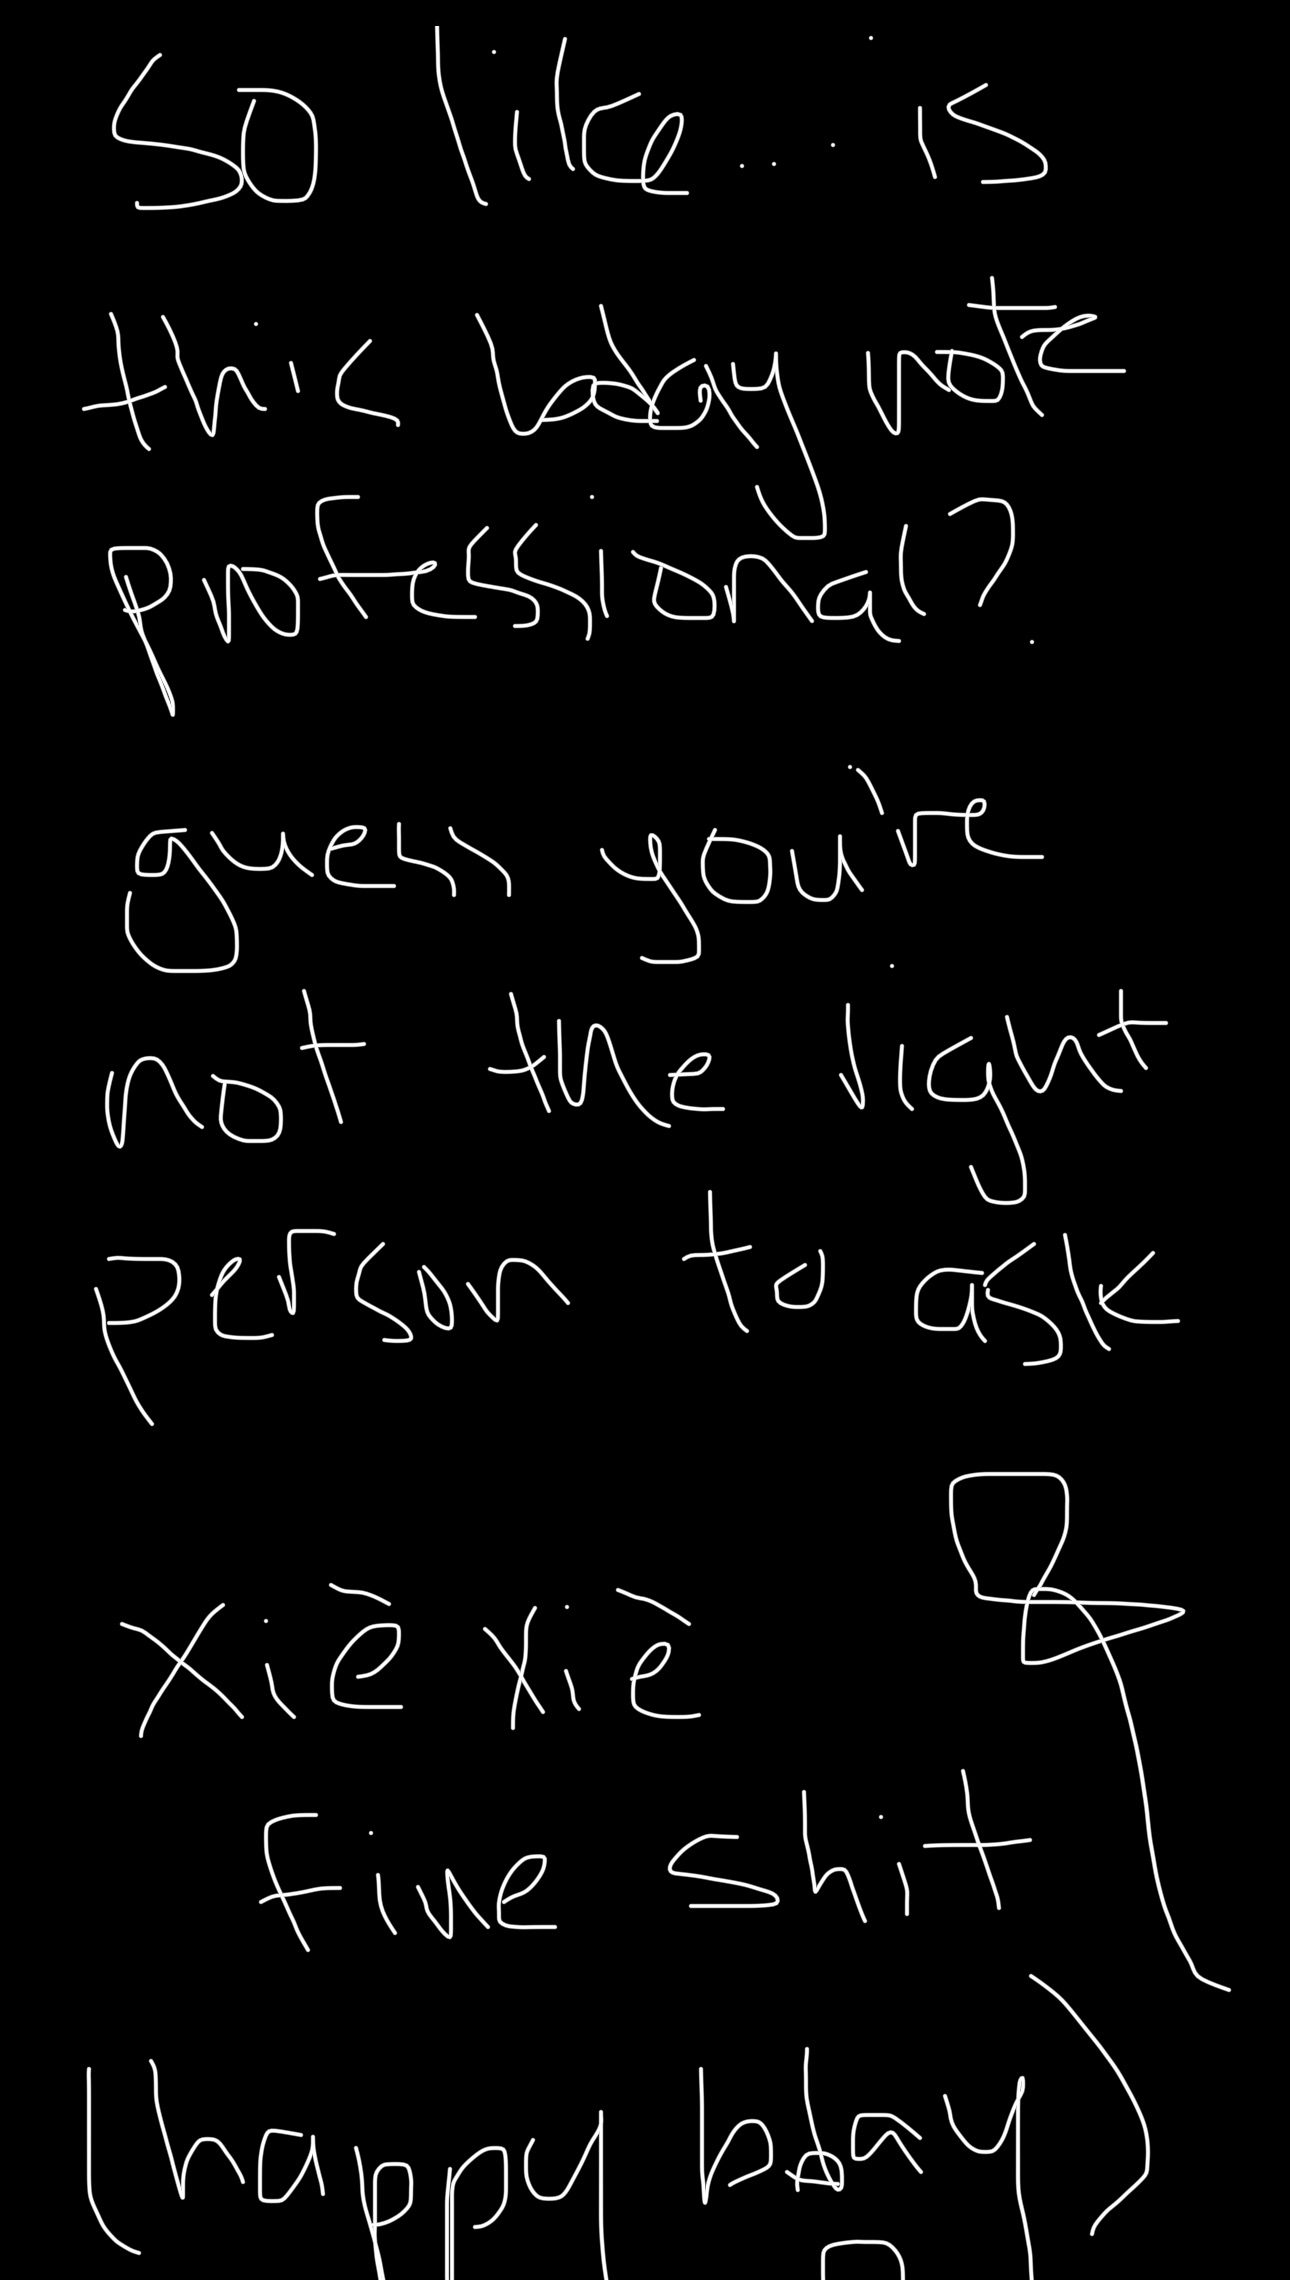 So like... is
this bday note
professional?
guess you're
not the right
person to ask
xiè xiè
fine shit
(happy bday)